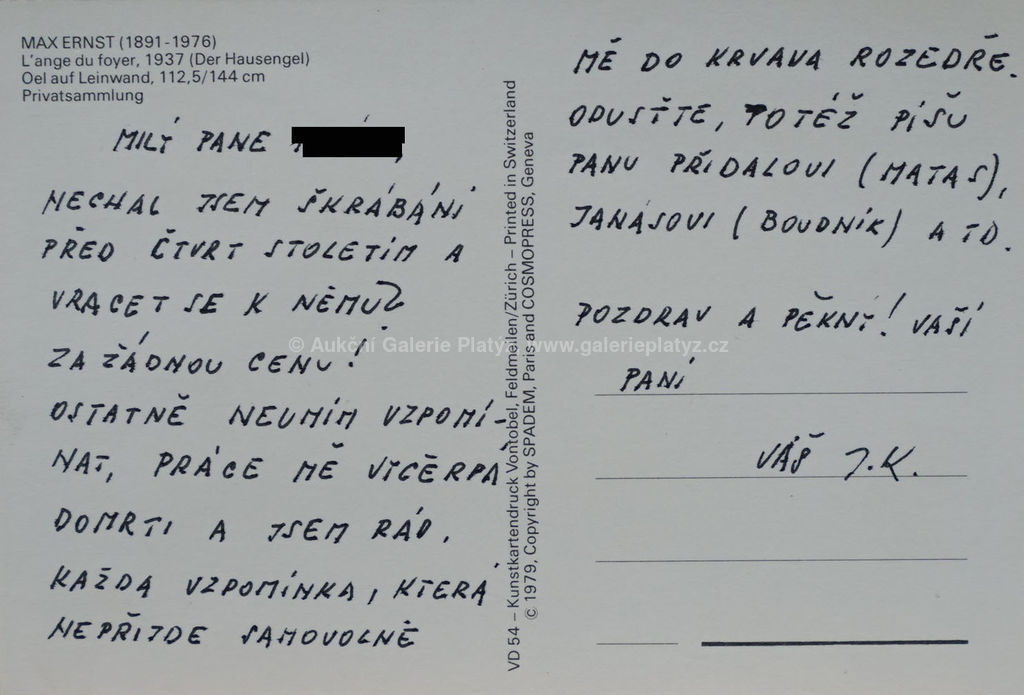 MAX ERNST (1891-1976)
L'ange du foyer, 1937 (Der Hausengel)
Oel auf Leinwand, 112,5/144 cm
Privatsammlung
MILÝ PANE
NECHAL JSEM ŠKRÁBÁNÍ
PŘED ČTVRT STOLETÍM A
VRACET SE K NĚMU?
ZA ŽÁDNOU CENU!
OSTATNĚ NEUMÍM VZPOMÍ-
NAT, PRÁCE MĚ VYČERPÁ
DOMRTI A JSEM RÁD.
KAŽDÁ VZPOMÍNKA, KTERÁ
NEPŘIJDE SAMOVOLNĚ
VD 54 – Kunstkartendruck Vontobel, Feldmeilen/Zürich – Printed in Switzerland
© 1979, Copyright by SPADEM, Paris and COSMOPRESS, Geneva
MĚ DO KRVAVA ROZEDŘE.
ODUSŤTE, TOTÉŽ PÍŠU
PANU PŘIDALOVI (MATAS),
JANÁSOVI (BOUDNÍK) A TD.
POZDRAV A PĚKNÝ! VAŠÍ
PANÍ
VÁŠ J.K.
© Aukční Galerie Platýz www.galerieplatyz.cz